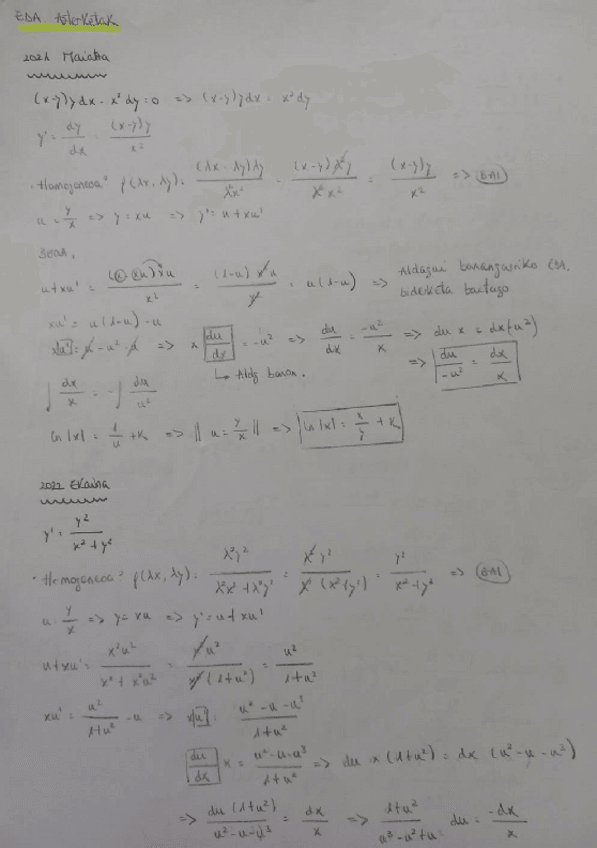 EDA Asterketak
2021 Maiatza
(x-y)y dx - x² dy = 0 => (x-y)y dx = x² dy
y' = dy/dx = (x-y)y/x²
· Homogeneoa? f(λx, λy) = (λx - λy)λy/λ²x² = (x-y)λ²y/λ²x² = (x-y)y/x² => BAI
u = y/x => y = xu => y' = u + xu'
u + xu' = (x - xu)xu/x² = (1-u)x²u/x² = u(1-u) => Aldagai banangarriko EDA,
xu' = u(1-u) - u
x u' = u - u² - u => x du/dx = -u² => du/dx = -u²/x => du x = dx(-u²)
=> du/-u² = dx/x
↳ Alda banan.
∫ dx/x = -∫ du/u²
ln|x| = 1/u + K => || u = y/x || => ln|x| = x/y + K
2022 Ekaina
y' = y²/x² + y²
· Homogeneoa? f(λx, λy) = λ²y²/λ²x² + λ²y² = λ²y²/λ²(x² + y²) = y²/x² + y² => BAI
u = y/x => y = xu => y' = u + xu'
u + xu' = x²u²/x² + x²u² = x²u²/x²(1+u²) = u²/1+u²
xu' = u²/1+u² - u => x u' = u² - u - u³/1+u²
du/dx x = u² - u - u³/1+u² => du x (1+u²) = dx (u² - u - u³)
=> du (1+u²)/u² - u - u³ = dx/x => 1+u²/u³ - u² + u du = -dx/x